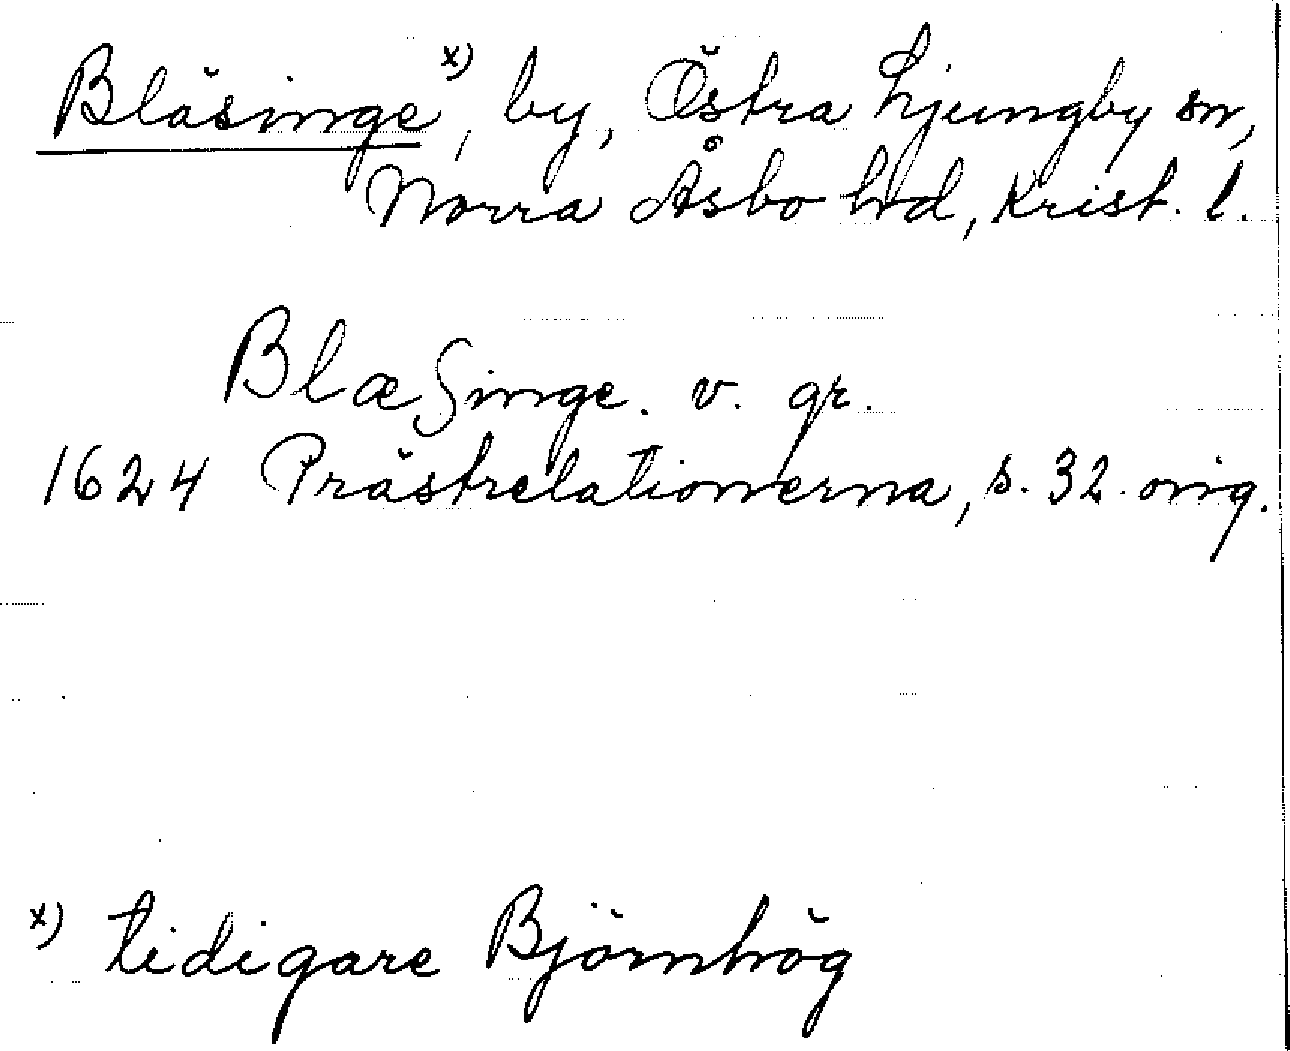 Bläsinge x), by, Östra Ljungby sn,
Norra Åsbo hd, Krist. l.
Blæsinge. v. gr.
1624 Prästrelationerna, s. 32. orig.
x) tidigare Björnhög